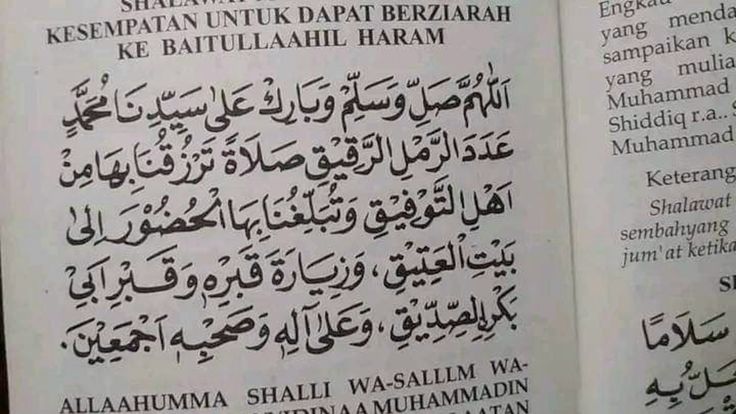 KESEMPATAN UNTUK DAPAT BERZIARAH
KE BAITULLAAHIL HARAM
اَللّٰهُمَّ صَلِّ وَسَلِّمْ وَبَارِكْ عَلٰى سَيِّدِنَا مُحَمَّدٍ
عَدَدَ الرَّمْلِ الرَّقِيْقِ صَلَاةً تَرْزُقُنَا بِهَا مِنْ
اَهْلِ التَّوْفِيْقِ وَتُبَلِّغُنَا بِهَا الْحُضُوْرَ اِلىٰ
بَيْتِ الْعَتِيْقِ، وَزِيَارَةَ قَبْرِهٖ وَقَبْرِ اَبِيْ
بَكْرِ الصِّدِّيْقِ، وَعَلٰى اٰلِهٖ وَصَحْبِهٖ اَجْمَعِيْنَ.
ALLAAHUMMA SHALLI WA-SALLLM WA-
MUHAMMADIN
Engkau
yang menda
sampaikan k
yang mulia
Muhammad
Shiddiq r.a.. S
Muhammad
Keterang
Shalawat
sembahyang
jum'at ketika
سَلَامًا